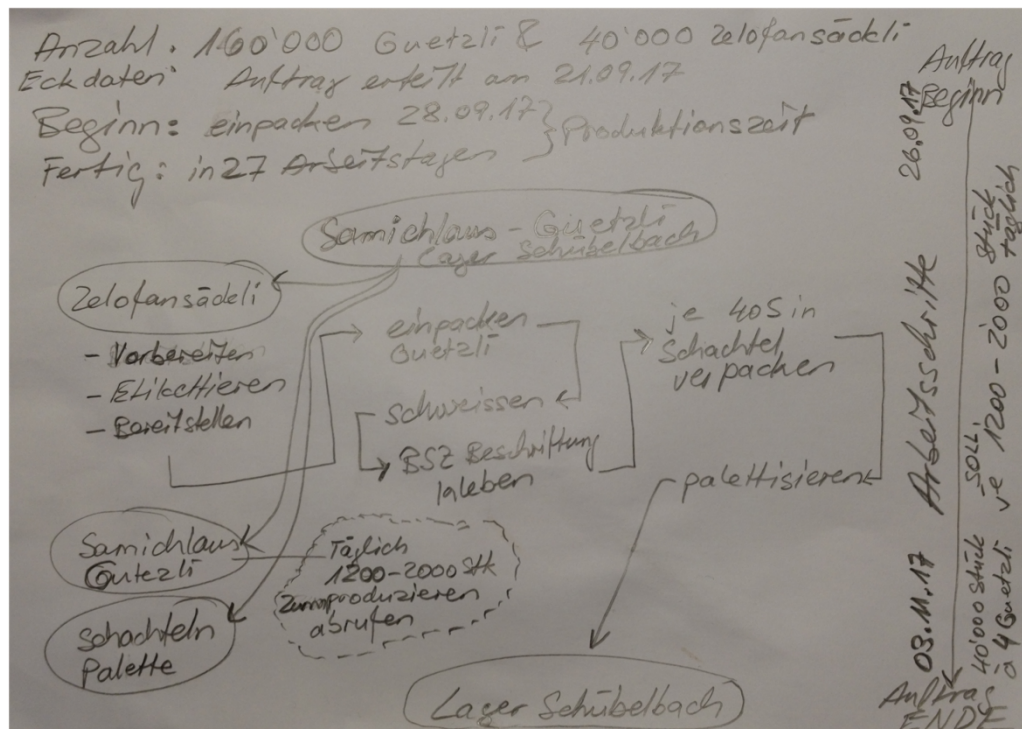 Anzahl. 160'000 Guetzli & 40'000 Zelofansäckli
Eckdaten: Auftrag erteilt am 21.09.17
Beginn: einpacken 28.09.17 } Produktionszeit
Fertig: in 27 Arbeitstagen
Samichlaus - Guetzli
Lager Schübelbach
Zelofansäckli
- Vorbereiten
- Etikettieren
- Bereitstellen
einpacken
Guetzli
schweissen
BSZ Beschriftung
je 40S in
Schachtel
verpacken
palettisieren
Samichlaus
Guetzli
Täglich
1200-2000 Stk
produzieren
abrufen
Schachteln
Palette
Lager Schübelbach
Auftrag
Beginn
26.09.17
Arbeitsschritte
03.11.17
SOLL:
40'000 Stück je 1200 - 2'000 Stück
à 4 Guetzli täglich
Auftrag
ENDE